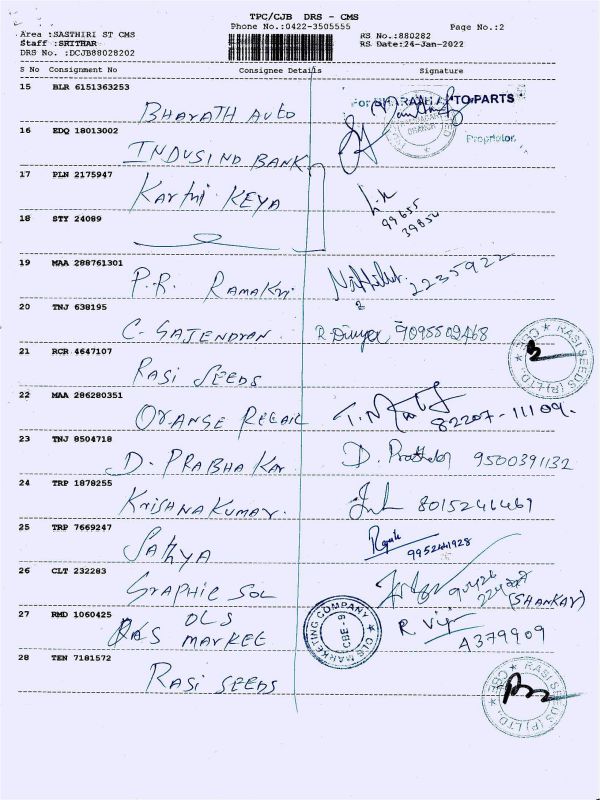 TPC/CJB DRS - CMS
Phone No.:0422-3505555 Page No.:2
Area :SASTHIRI ST CMS RS No.:880282
Staff :SRITHAR RS Date:24-Jan-2022
DRS No. :DCJB88028202
S No Consignment No Consignee Details Signature
15 BLR 6151363253
For BHARATH AUTO PARTS
BHARATH AUTO
Proprietor
16 EDQ 18013002
INDUSIND BANK
17 PLN 2175947
Karthi KEYA
99655
39850
18 STY 24089
19 MAA 288761301
P.R. RAMAKRI 2235922
20 TNJ 638195
C. GAJENDRAN 9095502468
21 RCR 4647107
RASI SEEDS
RASI SEEDS (P) LTD., CBE
22 MAA 286280351
ORANGE RETAIL 82207-11109.
23 TNJ 8504718
D. PRABHAKAR D. Prabhakar 9500391132
24 TRP 1878255
KRISHNAKUMAR. 8015241467
25 TRP 7669247
SATHYA 9952441928
26 CLT 232283
GRAPHIC SOL (SHANKAR)
27 RMD 1060425
OLS
OLS MARKET R. Vijay A379909
OLS MARKETING COMPANY CBE-9
28 TEN 7181572
RASI SEEDS
RASI SEEDS (P) LTD., CBE